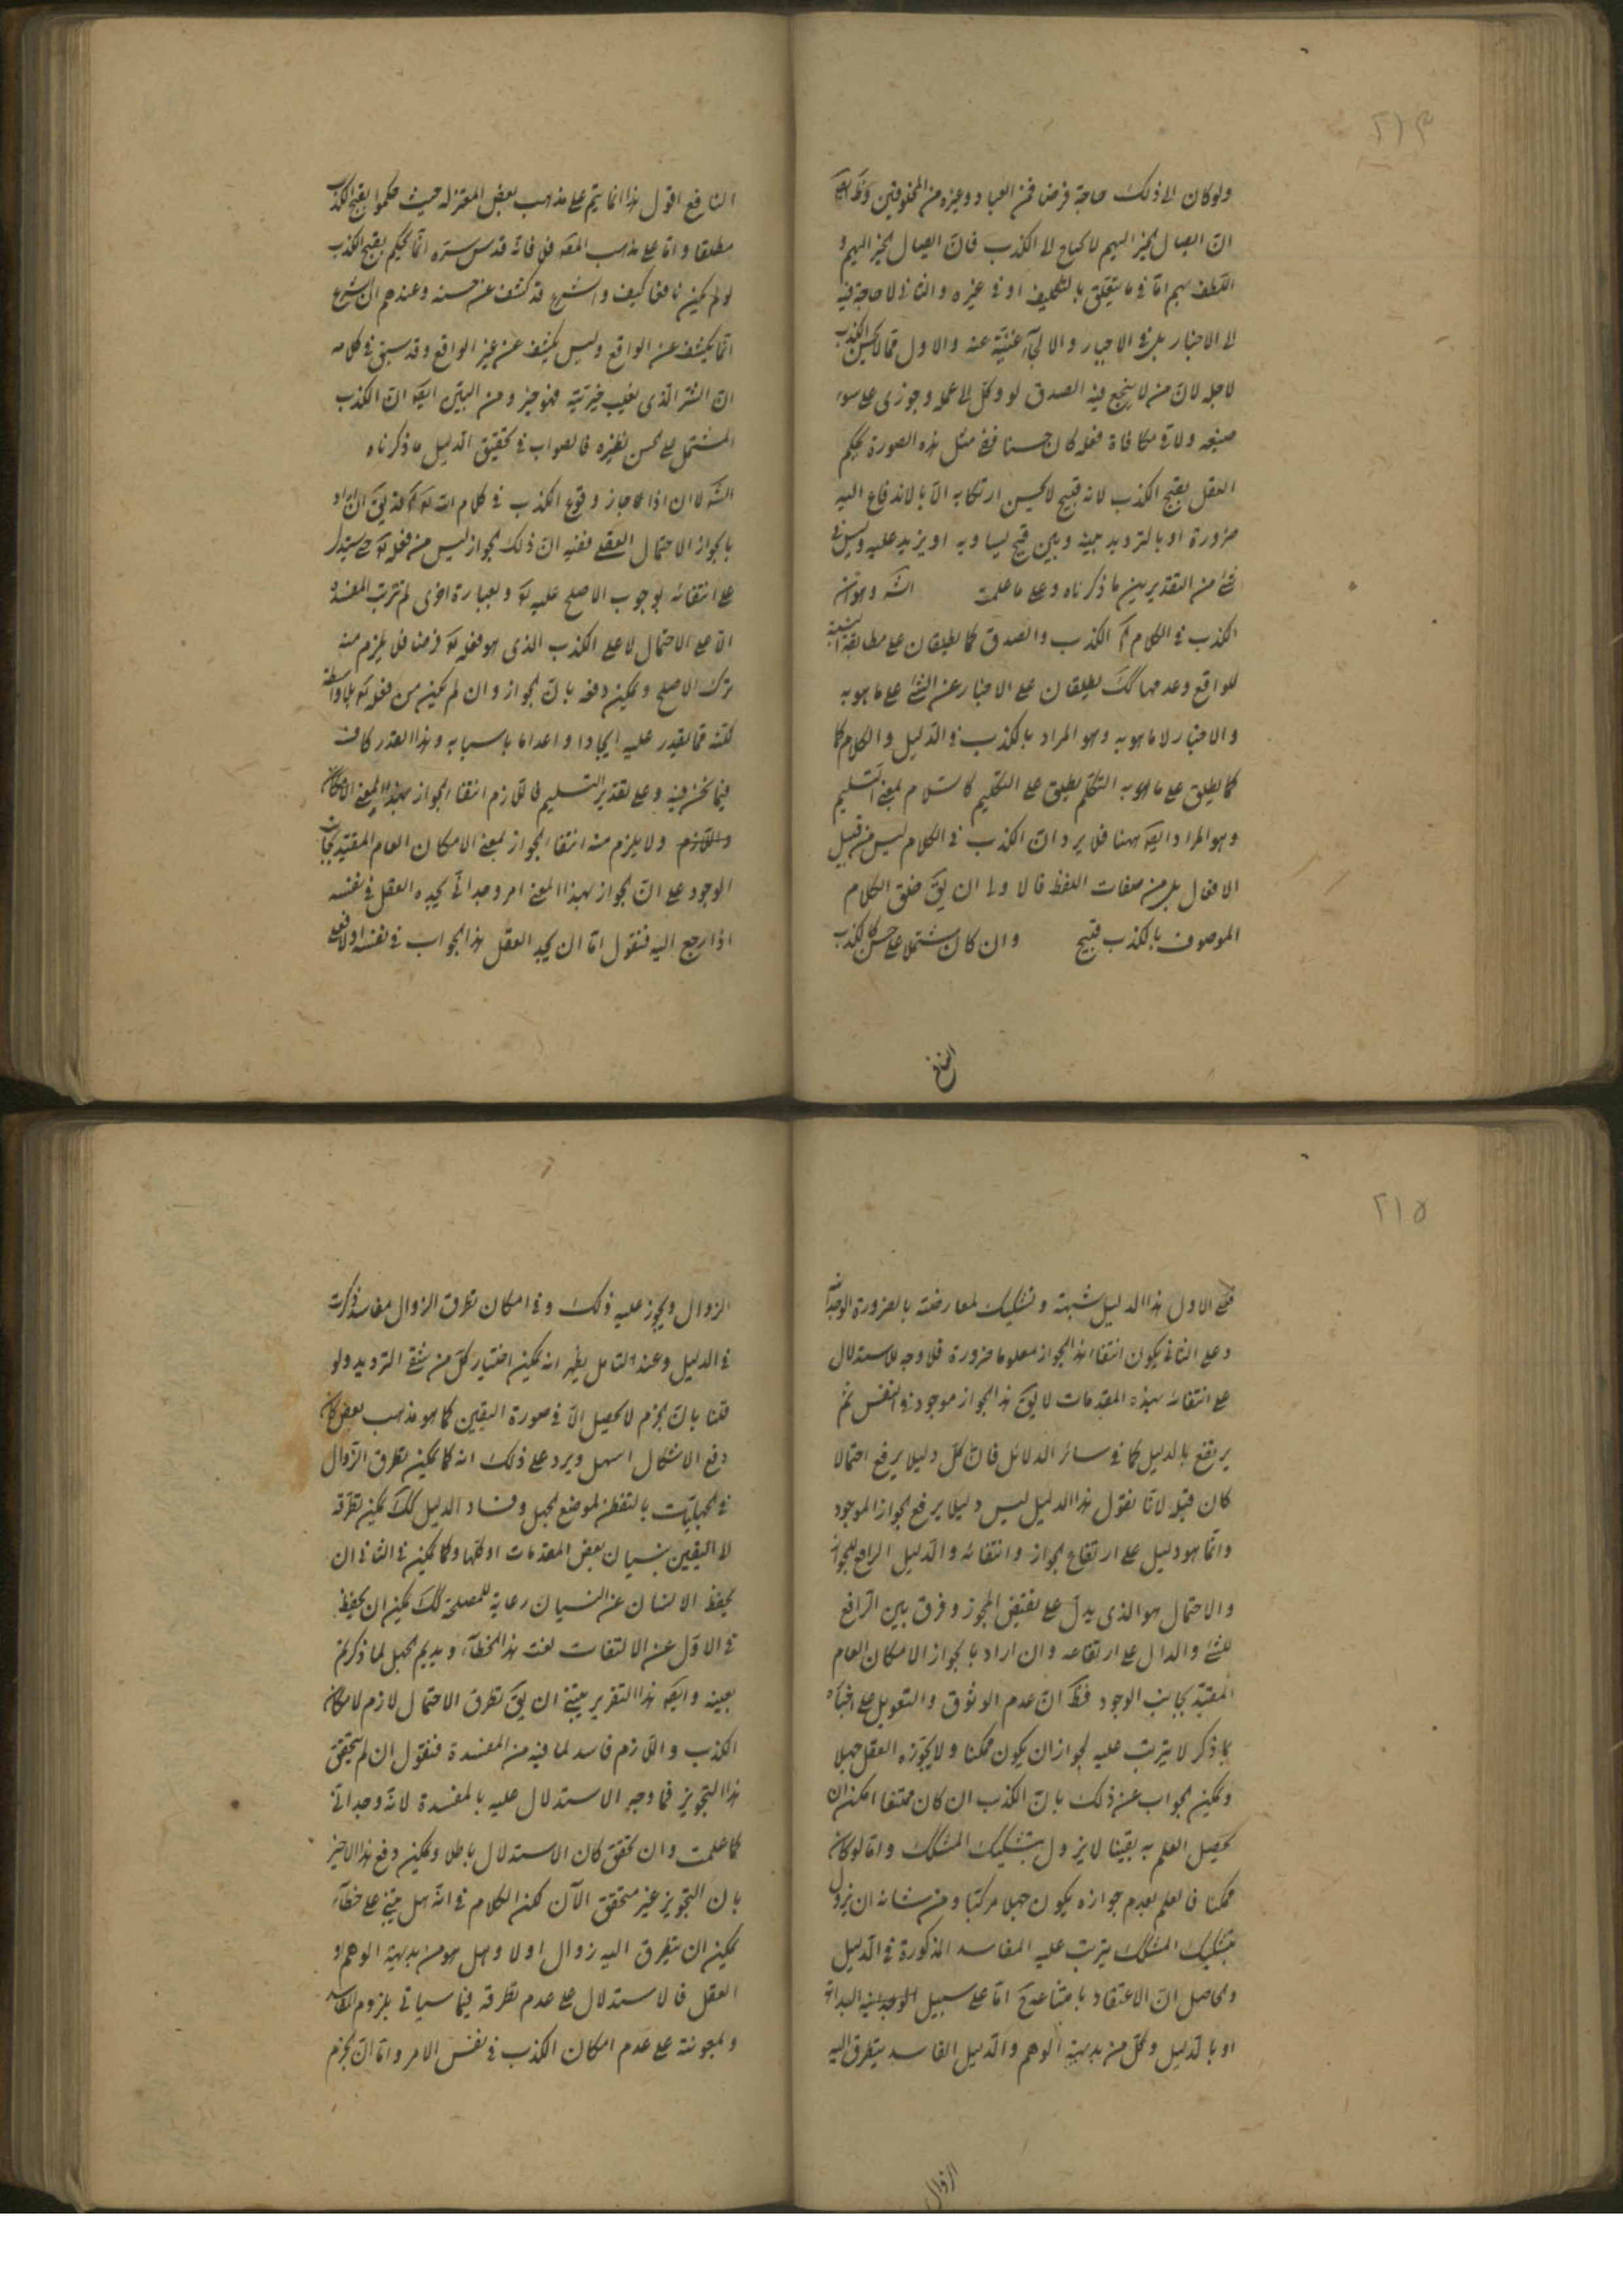 ٢١٣
ولو كان الى ذلك حاجة فرضا فمن العباد وغيره من المخلوقين وظ ايضا
ان ايصال الخير اليهم لا يحتاج الى الكذب فان ايصال الخير اليهم و
اللطف بهم اما في ما يتعلق بالتكليف او في غيره والثاني لا حاجة فيه
الى الاخبار بل في الاجبار والالجآء غنية عنه والاول مما لا يحسن الكذب
لاجله لان من لا ينجع فيه الصدق لو وكل الى عمله وجوزى على سوء
صنيعه ولاقى مكافاة فعله كان حسنا ففي مثل هذه الصورة يحكم
العقل بقبح الكذب لانه قبيح لا يحسن ارتكابه الا بالاندفاع اليه
ضرورة او بالترديد بينه وبين قبيح يساويه او يزيد عليه وليس في
شئ من التقديرين ما ذكرناه وعلى ما علمت الشه وهو ان
الكذب في الكلام آه الكذب والصدق كما يطلقان على مطابقة النسبة
للواقع وعدمها كك يطلقان على الاخبار عن الشئ على ما هو به
والاخبار لا ما هو به وهو المراد بالكذب في الدليل والكلام كما
كما يطلق على ما هو به التكلم يطلق على التكليم كالسلام بمعنى التسليم
وهو المراد ايضه ههنا فلا يرد ان الكذب في الكلام ليس من قبيل
الافعال بل من صفات اللفظ فالاولى ان يق خلق الكلام
الموصوف بالكذب قبيح وان كان مشتملا على حسن كالكذب
النافع
النافع اقول هذا انما يتم على مذهب بعض المعتزلة حيث حكموا بقبح الكذب
مطلقا واما على مذهب المصه فلا فانه قدس سره انما يحكم بقبح الكذب
لو لم يكن نافعا كيف والشرع قد كشف عن حسنه وعندهم ان الشرع
انما يكشف عن الواقع وليس يكشف عن غير الواقع وقد سبق في كلامه
ان الشر الذي يغلب خيريته فهو خير ومن البين ايضه ان الكذب
المشتمل على حسن نظيره فالصواب في تحقيق الدليل ما ذكرناه
الشه لا ان اذا جاز وقوع الكذب في كلام الله تع آه قد يق ان اراد
بالجواز الاحتمال العقلى ففيه ان ذلك الجواز ليس من فعله تع حتى يستدل
على انتفائه بوجوب الاصلح عليه تع وبعبارة اخرى لم تترتب المفسدة
الا على الاحتمال لا على الكذب الذي هو فعله تع فرضا فلا يلزم منه
ترك الاصلح ويمكن دفعه بان الجواز وان لم يكن من فعله تع بلا واسطة
لكنه مما يقدر عليه ايجادا واعداما باسبابه وهذا القدر كاف
فيما نحن فيه وعلى تقدير التسليم فاللازم انتفا الجواز بهذا المعنى لا امكان
واللازم ولا يلزم منه انتفا الجواز بمعنى الامكان العام المقيد بجانب
الوجود على ان الجواز بهذا المعنى امر وجدانى يجده العقل في نفسه
اذا رجع اليه فنقول اما ان يجد العقل هذا الجواب في نفسه او لا فعلى
٢١٥
فعلى الاول هذا الدليل شبهة وتشكيك لمعارضته بالضرورة الوجدانية
وعلى الثاني يكون انتفا هذا الجواز معلوما ضرورة فلا وجه للاستدلال
على انتفائه بهذه المقدمات لا يق هذا الجواز موجود في النفس ثم
يرتفع بالدليل كما في سائر الدلائل فان كل دليل يرفع احتمالا
كان قبله لانا نقول هذا الدليل ليس دليلا يرفع الجواز الموجود
وانما هو دليل على ارتفاع الجواز وانتفائه والدليل الرافع للجواز
والاحتمال هو الذي يدل على نقيض المجوز وفرق بين الرافع
للشئ والدال على ارتفاعه وان اراد بالجواز الامكان العام
المقيد بجانب الوجود فظ ان عدم الوثوق والتعويل على اخباره
بما ذكر لا يترتب عليه لجواز ان يكون ممكنا ولا يجوزه العقل جهلا
ويمكن الجواب عن ذلك بان الكذب ان كان ممتنعا امكن ان
يحصل العلم به يقينا لا يزول بتشكيك المشكك واما لو كان
ممكنا فالعلم بعدم جوازه يكون جهلا مركبا ومن شانه ان يزول
بتشكيك المشكك يترتب عليه المفاسد المذكورة في الدليل
والحاصل ان الاعتقاد بامتناعه ح اما على سبيل البداهة
او بالدليل وكل من بديهة الوهم والدليل الفاسد يتطرق اليه
الزوال
الزوال ويجوز عليه ذلك وفي امكان تطرق الزوال مفاسد ذكرت
في الدليل وعند التامل يظهر انه يمكن اختيار كل من شقى الترديد ولو
قلنا بان الجزم لا يحصل الا في صورة اليقين كما هو مذهب بعض كان
دفع الاشكال اسهل ويرد على ذلك انه كما يمكن تطرق الزوال
في الجهليات بالتفطن لموضع الجهل وفساد الدليل كك يمكن تطرقه
الى اليقين بنسيان بعض المقدمات او كلها وكما يمكن في الثاني ان
يحفظ الانسان عن النسيان رعاية للمصلحة كك يمكن ان يحفظ
في الاول عن الالتفات لفت هذا الخطآء ويديم الجهل لما ذكرتم
بعينه وايضه هذا التقرير يبتنى ان يق تطرق الاحتمال لازم لامكان
الكذب واللازم فاسد لما فيه من المفسدة فنقول ان لم يتحقق
هذا التجويز فما وجه الاستدلال عليه بالمفسدة لانه وجدانى
كما علمت وان تحقق كان الاستدلال باطلا ويمكن دفع هذا الاخير
بان التجويز غير متحقق الآن لكن الكلام في انه هل يبتنى على خطآء
يمكن ان يتطرق اليه زوال اولا وهل هو من بديهة الوهم او
العقل فالاستدلال على عدم تطرقه فيما سياتى بلزوم المفاسد
وبمعونته على عدم امكان الكذب في نفس الامر واما ان الجزم